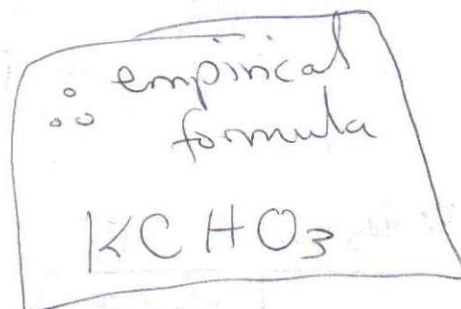 ∴ empirical
formula
KCHO₃